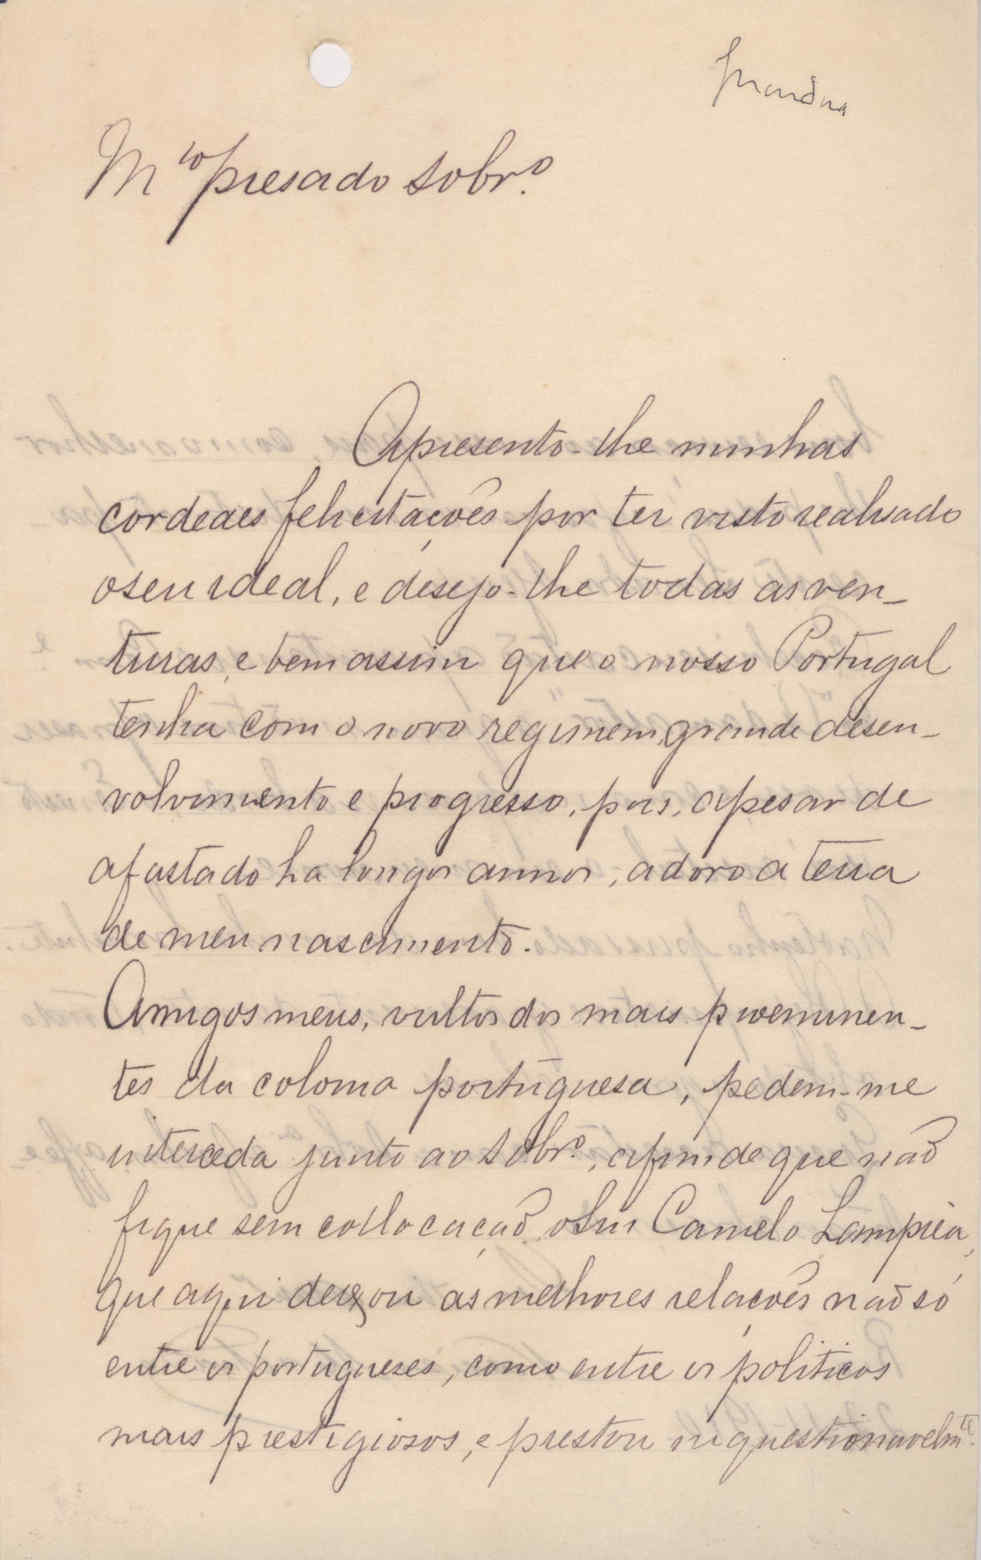 M.to presado Sobr.o
Apresento-lhe minhas
cordeaes felicitações por ter visto realisado
o seu ideal, e desejo-lhe todas as ven-
turas, e bem assim que o nosso Portugal
tenha com o novo regimem grande desen-
volvimento e progresso, pois, apesar de
afastado ha longos annos, adoro a terra
de meu nascimento.
Amigos meus, vultos dos mais proeminen-
tes da colonia portuguesa, pedem-me
interceda junto ao Sobr.o, afim de que não
fique sem collocação o Snr Camelo Lampreia,
que aqui deixou as melhores relações não só
entre os portugueses, como entre os politicos
mais prestigiosos, e prestou inquestionavelm.te